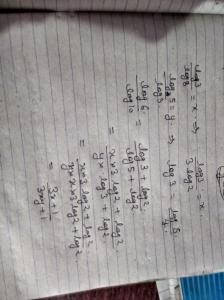 log3/log8 = x ⇒ log3/3 log2 = x
log5/log3 = y ⇒ log3 = log5/y
log6/log10 = log3 + log2/log5 + log2
= x×3 log2 + log2/y× log3 + log2
= x×3 log2 + log2/y×x×3 log2 + log2
= 3x+1/3xy+1